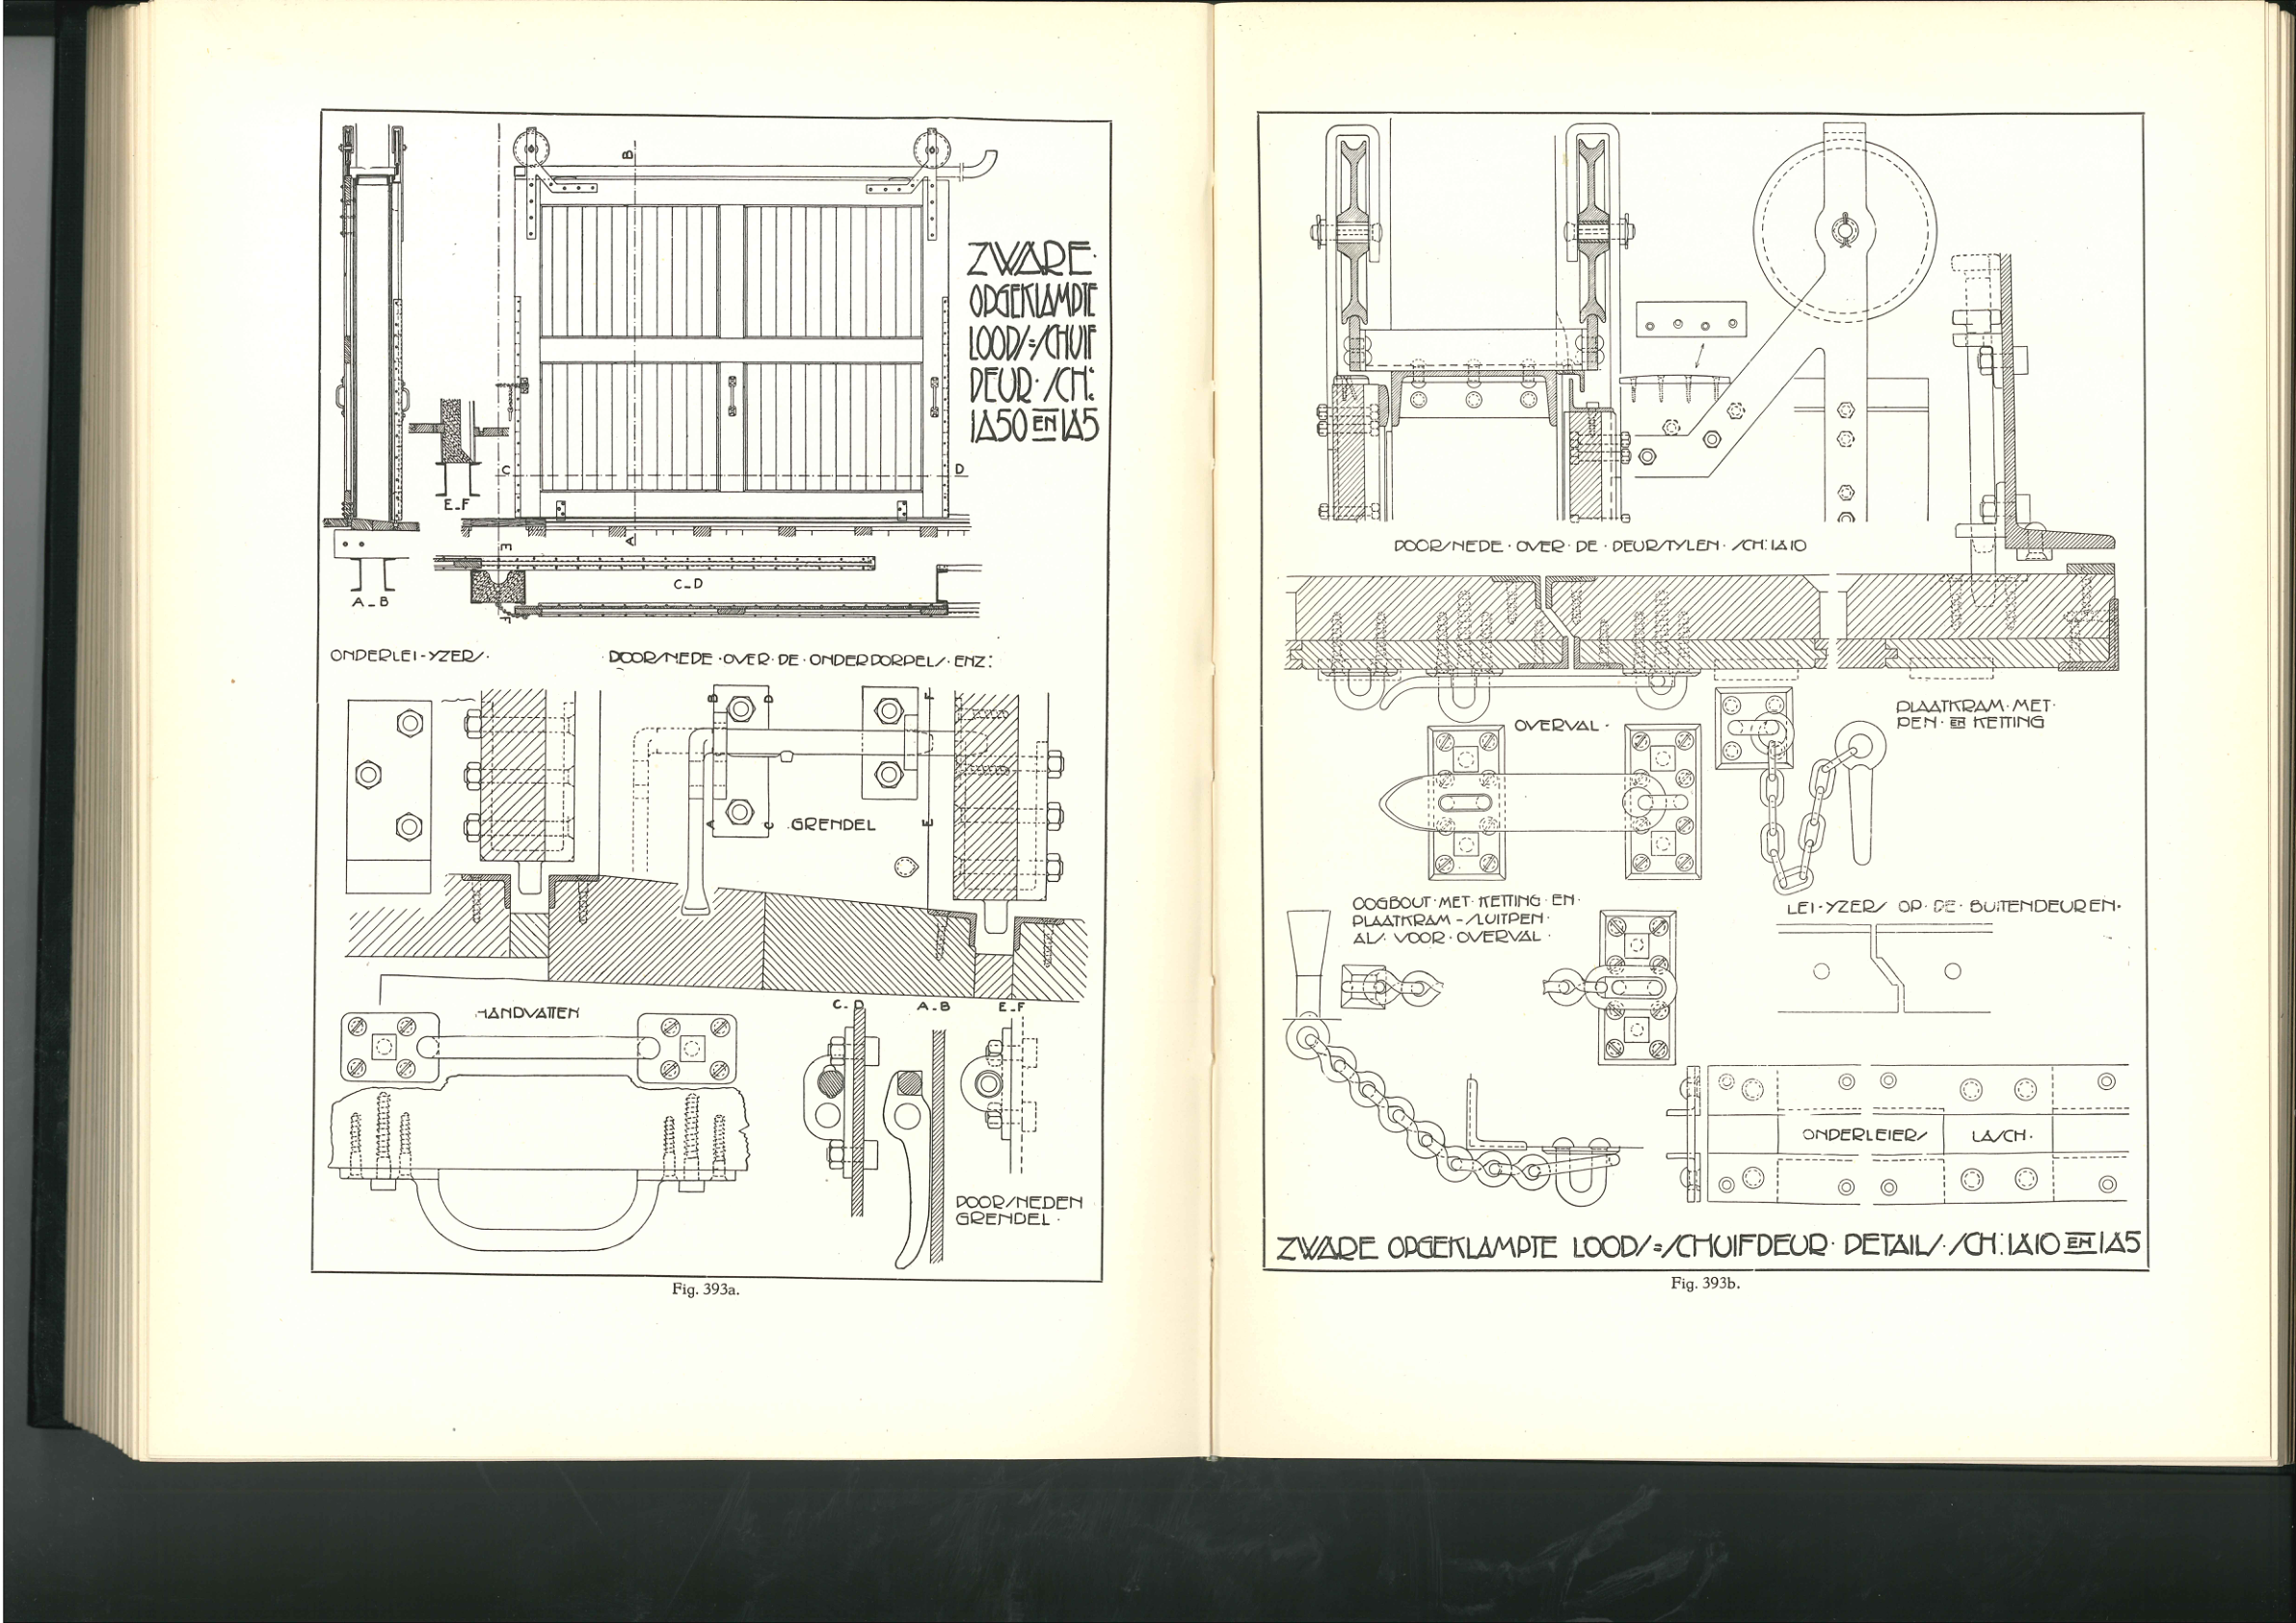 B
ZWARE·
OPGEKLAMPTE
LOODS=SCHUIF
DEUR·SCH:
1À50 EN 1À5
C
D
E-F
A
E
C-D
A-B
F
ONDERLEI-YZERS·
·DOORSNEDE·OVER·DE·ONDERDORPELS·ENZ:
B
D
F
A
C
·GRENDEL
E
C-D
A-B
E-F
HANDVATTEN
DOORSNEDEN
GRENDEL·
Fig. 393a.
DOORSNEDE·OVER·DE·DEURSTYLEN·SCH:1À10
OVERVAL·
PLAATKRAM·MET·
PEN·EN KETTING
OOGBOUT·MET·KETTING·EN·
PLAATKRAM-SLUITPEN·
ALS·VOOR·OVERVAL·
LEI-YZERS OP·DE·BUITENDEUREN·
ONDERLEIERS
LASCH·
ZWARE OPGEKLAMPTE LOODS=SCHUIFDEUR·DETAILS·SCH:1À10 EN 1À5
Fig. 393b.